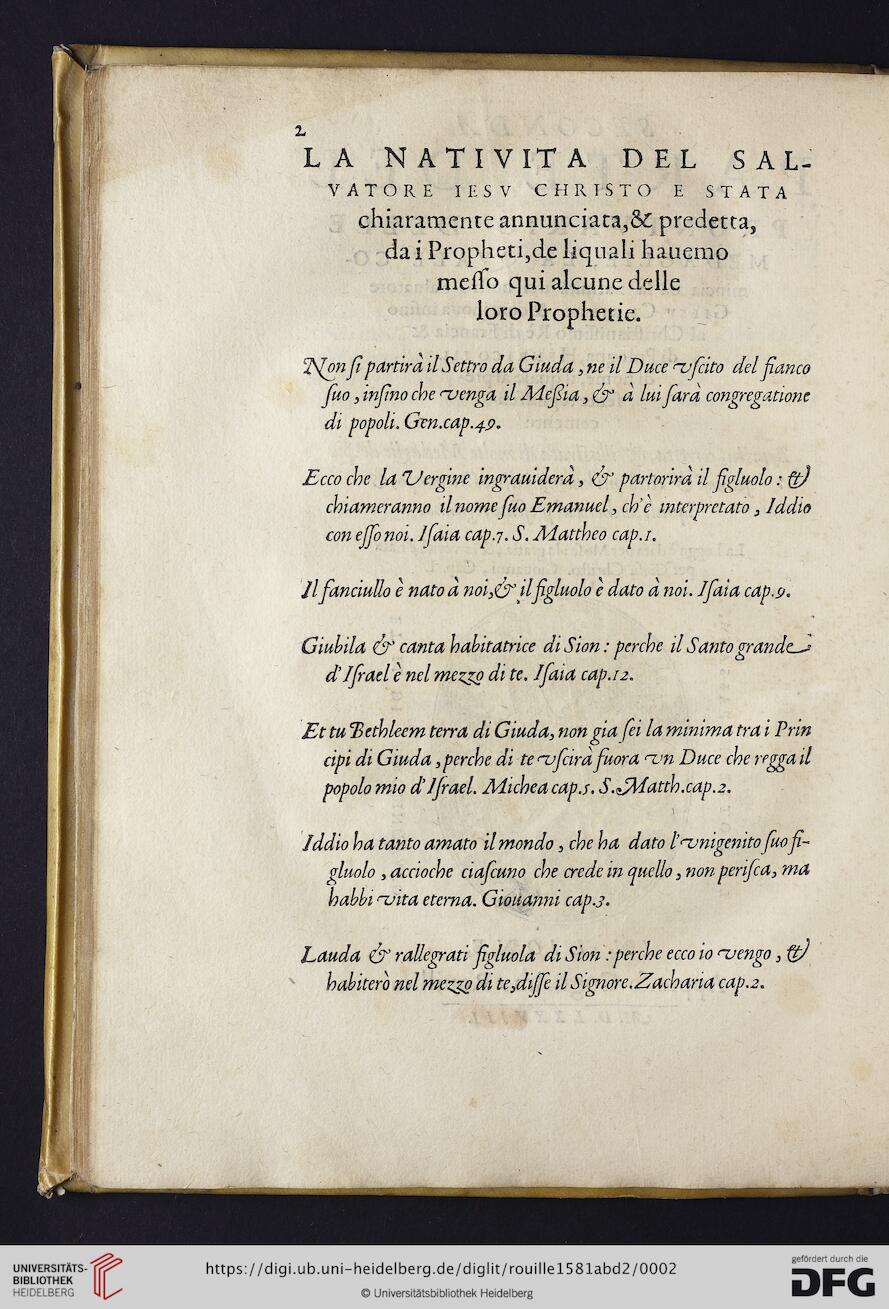 2
LA NATIVITA DEL SAL-
VATORE IESV CHRISTO E STATA
chiaramente annunciata,& predetta,
da i Propheti,de liquali hauemo
meſſo qui alcune delle
loro Prophetie.
Non ſi partirà il Settro da Giuda, ne il Duce vſcito del fianco
ſuo, inſino che venga il Meßia, & à lui ſarà congregatione
di popoli. Gen.cap.49.
Ecco che la Vergine ingrauiderà, & partorirà il figluolo: &
chiameranno il nome ſuo Emanuel, ch'è interpretato, Iddio
con eſſo noi. Iſaia cap.7. S. Mattheo cap.1.
Il fanciullo è nato à noi,& il figluolo è dato à noi. Iſaia cap.9.
Giubila & canta habitatrice di Sion: perche il Santo grande
d'Iſrael è nel mezzo di te. Iſaia cap.12.
Et tu Bethleem terra di Giuda, non gia ſei la minima tra i Prin
cipi di Giuda, perche di te vſcirà fuora vn Duce che regga il
popolo mio d'Iſrael. Michea cap.5. S. Matth.cap.2.
Iddio ha tanto amato il mondo, che ha dato l'vnigenito ſuo fi-
gluolo, accioche ciaſcuno che crede in quello, non periſca, ma
habbi vita eterna. Giouanni cap.3.
Lauda & rallegrati figluola di Sion: perche ecco io vengo, &
habiterò nel mezzo di te,diſſe il Signore. Zacharia cap.2.
UNIVERSITÄTS-
BIBLIOTHEK
HEIDELBERG
https://digi.ub.uni-heidelberg.de/diglit/rouille1581abd2/0002
© Universitätsbibliothek Heidelberg
gefördert durch die
DFG